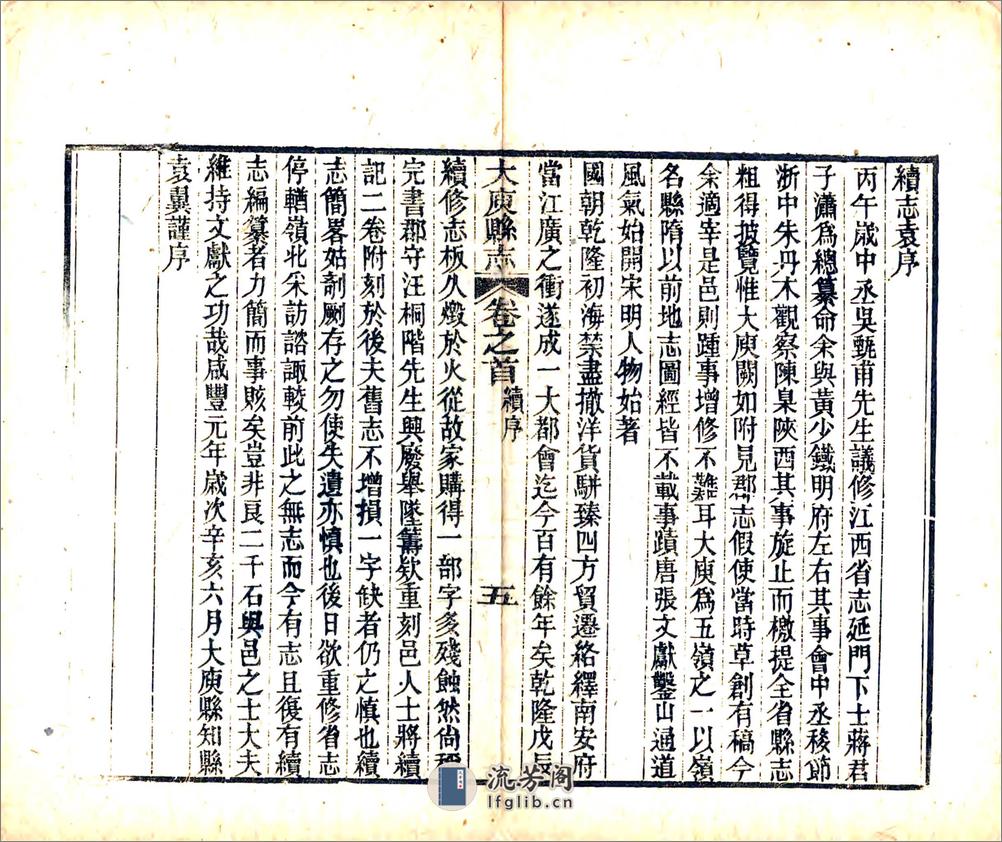 續志袁序
丙午歲中丞吳甄甫先生議修江西省志延門下士蔣君
子瀟爲總纂命余與黃少鐵明府左右其事會中丞移節
浙中朱丹木觀察陳臬陝西其事旋止而檄提全省縣志
粗得披覽惟大庾闕如附見郡志假使當時草創有稿今
余適宰是邑則踵事增修不難耳大庾爲五嶺之一以嶺
名縣隋以前地志圖經皆不載事蹟唐張文獻鑿山通道
風氣始開宋明人物始著
國朝乾隆初海禁盡撤洋貨駢臻四方貿遷絡繹南安府
當江廣之衝遂成一大都會迄今百有餘年矣乾隆戊辰
大庾縣志 卷之首 續序 五
續修志板久燬於火從故家購得一部字多殘蝕然尙稱
完書郡守汪桐階先生興廢舉墜籌欵重刻邑人士將續
記二卷附刻於後夫舊志不增損一字缺者仍之慎也續
志簡畧姑剞劂存之勿使失遺亦慎也後日欲重修省志
停輶嶺北采訪諮諏較前此之無志而今有志且復有續
志編纂者力簡而事賅矣豈非良二千石與邑之士大夫
維持文獻之功哉咸豐元年歲次辛亥六月大庾縣知縣
袁翼謹序
流芳阁
lfglib.cn